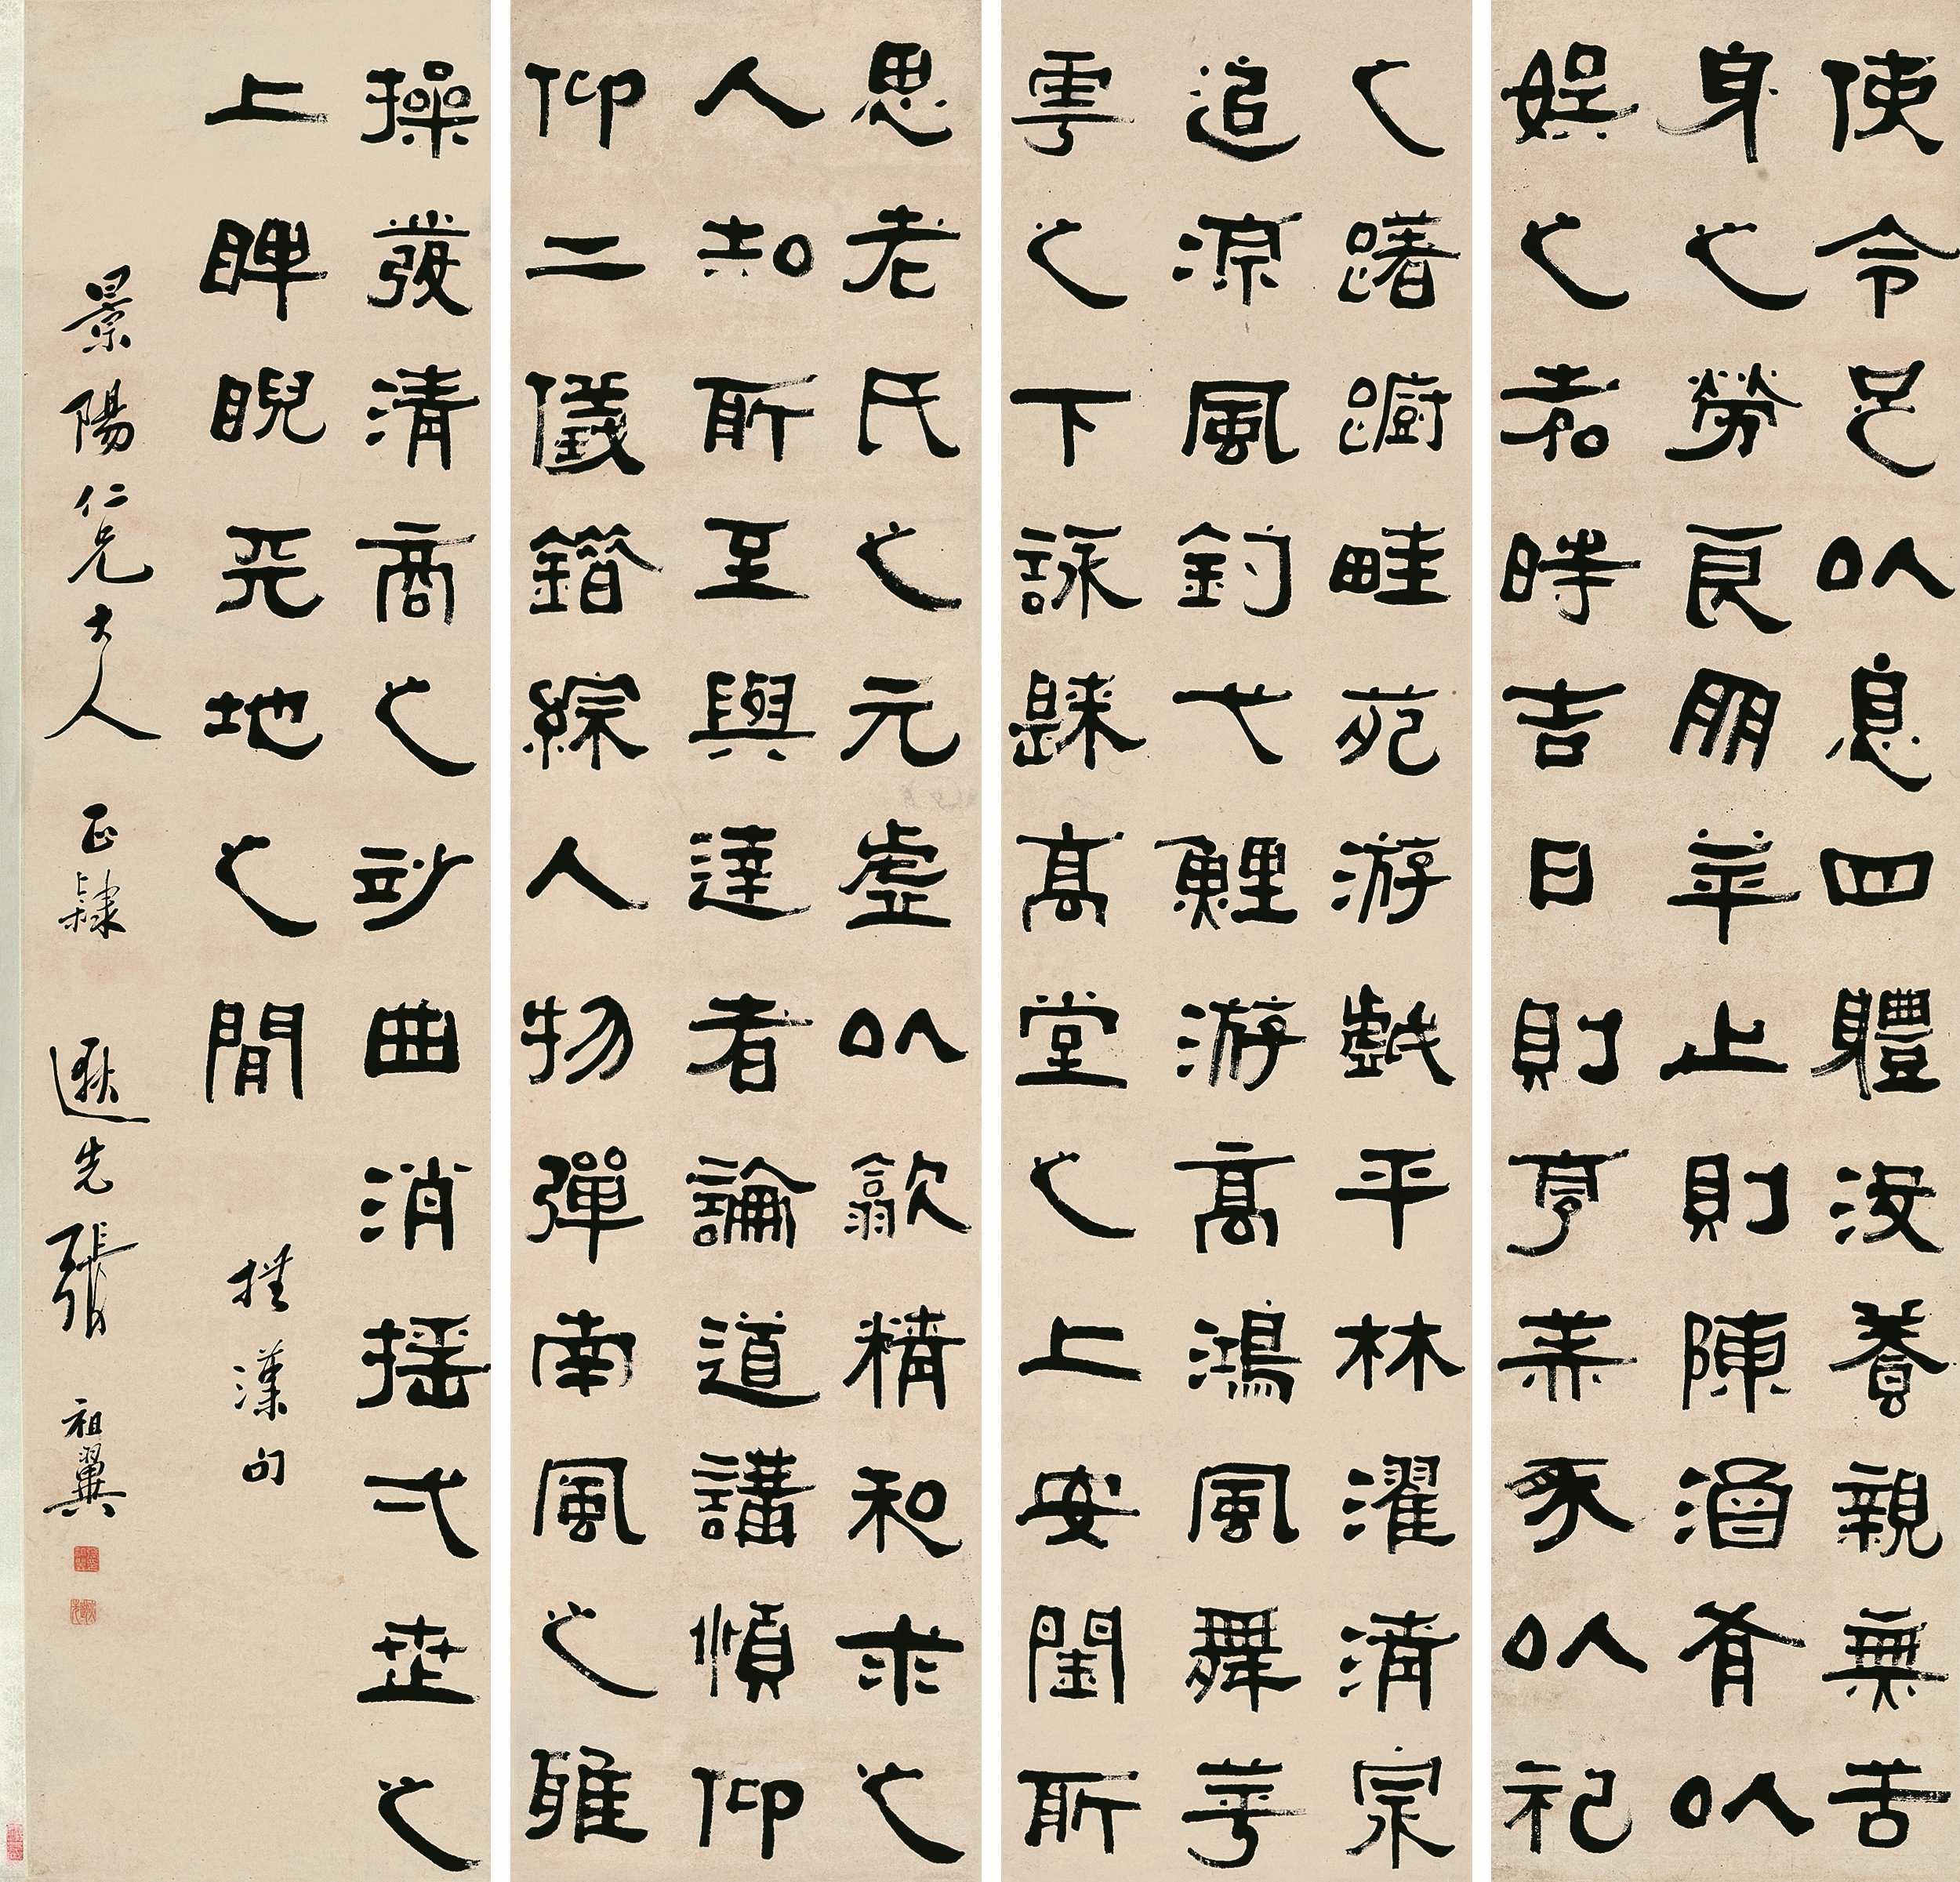 使令足以息四體没養親無苦
身之勞良朋萃止則陳酒肴以
娛之若時吉日則亨羔豕以祀
之躇躕畦苑游戲平林濯清宗
追涼風釣弋鯉游高鴻風舞雩
雩之下詠歸高堂之上安閨所
思老氏之元虛以歙精和求之
人知所至與達者論道講慎仰
仰二儀錯綜人物彈南風之雅
操發清商之妙曲消搖弌世之
上睥睨天地之閒 漢句
景陽仁兄大人 正隸 逖先張祖翼